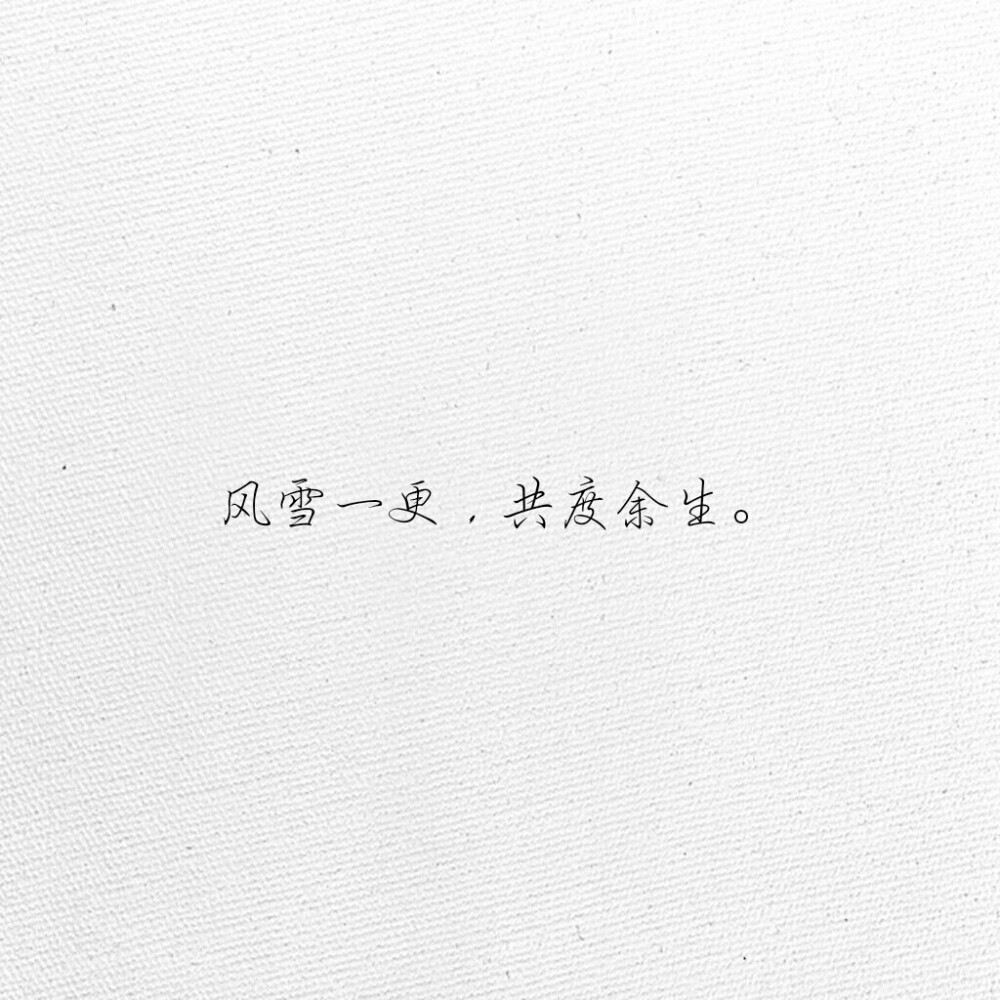 风雪一更，共度余生。